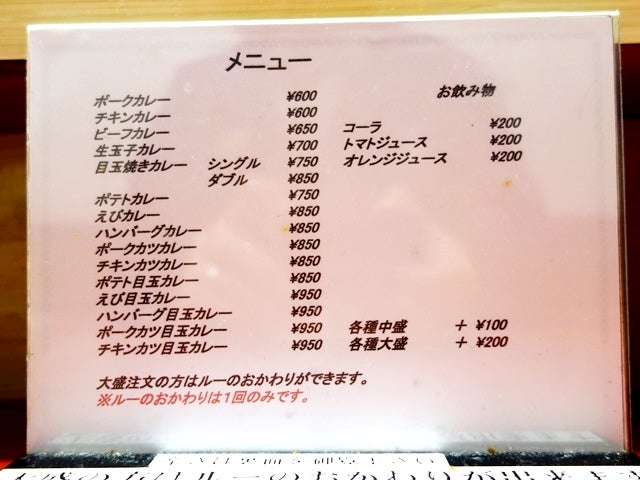 メニュー
ポークカレー ¥600
チキンカレー ¥600
ビーフカレー ¥650
生玉子カレー ¥700
目玉焼きカレー シングル ¥750
ダブル ¥850
ポテトカレー ¥750
えびカレー ¥850
ハンバーグカレー ¥850
ポークカツカレー ¥850
チキンカツカレー ¥850
ポテト目玉カレー ¥850
えび目玉カレー ¥950
ハンバーグ目玉カレー ¥950
ポークカツ目玉カレー ¥950
チキンカツ目玉カレー ¥950
お飲み物
コーラ ¥200
トマトジュース ¥200
オレンジジュース ¥200
各種中盛 + ¥100
各種大盛 + ¥200
大盛注文の方はルーのおかわりができます。
※ルーのおかわりは1回のみです。